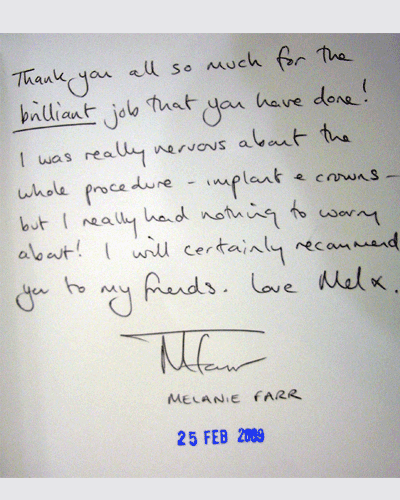 Thank you all so much for the
brilliant job that you have done!
I was really nervous about the
whole procedure - implant & crowns -
but I really had nothing to worry
about! I will certainly recommend
you to my friends. Love Mel x.
MFarr
MELANIE FARR
25 FEB 2009